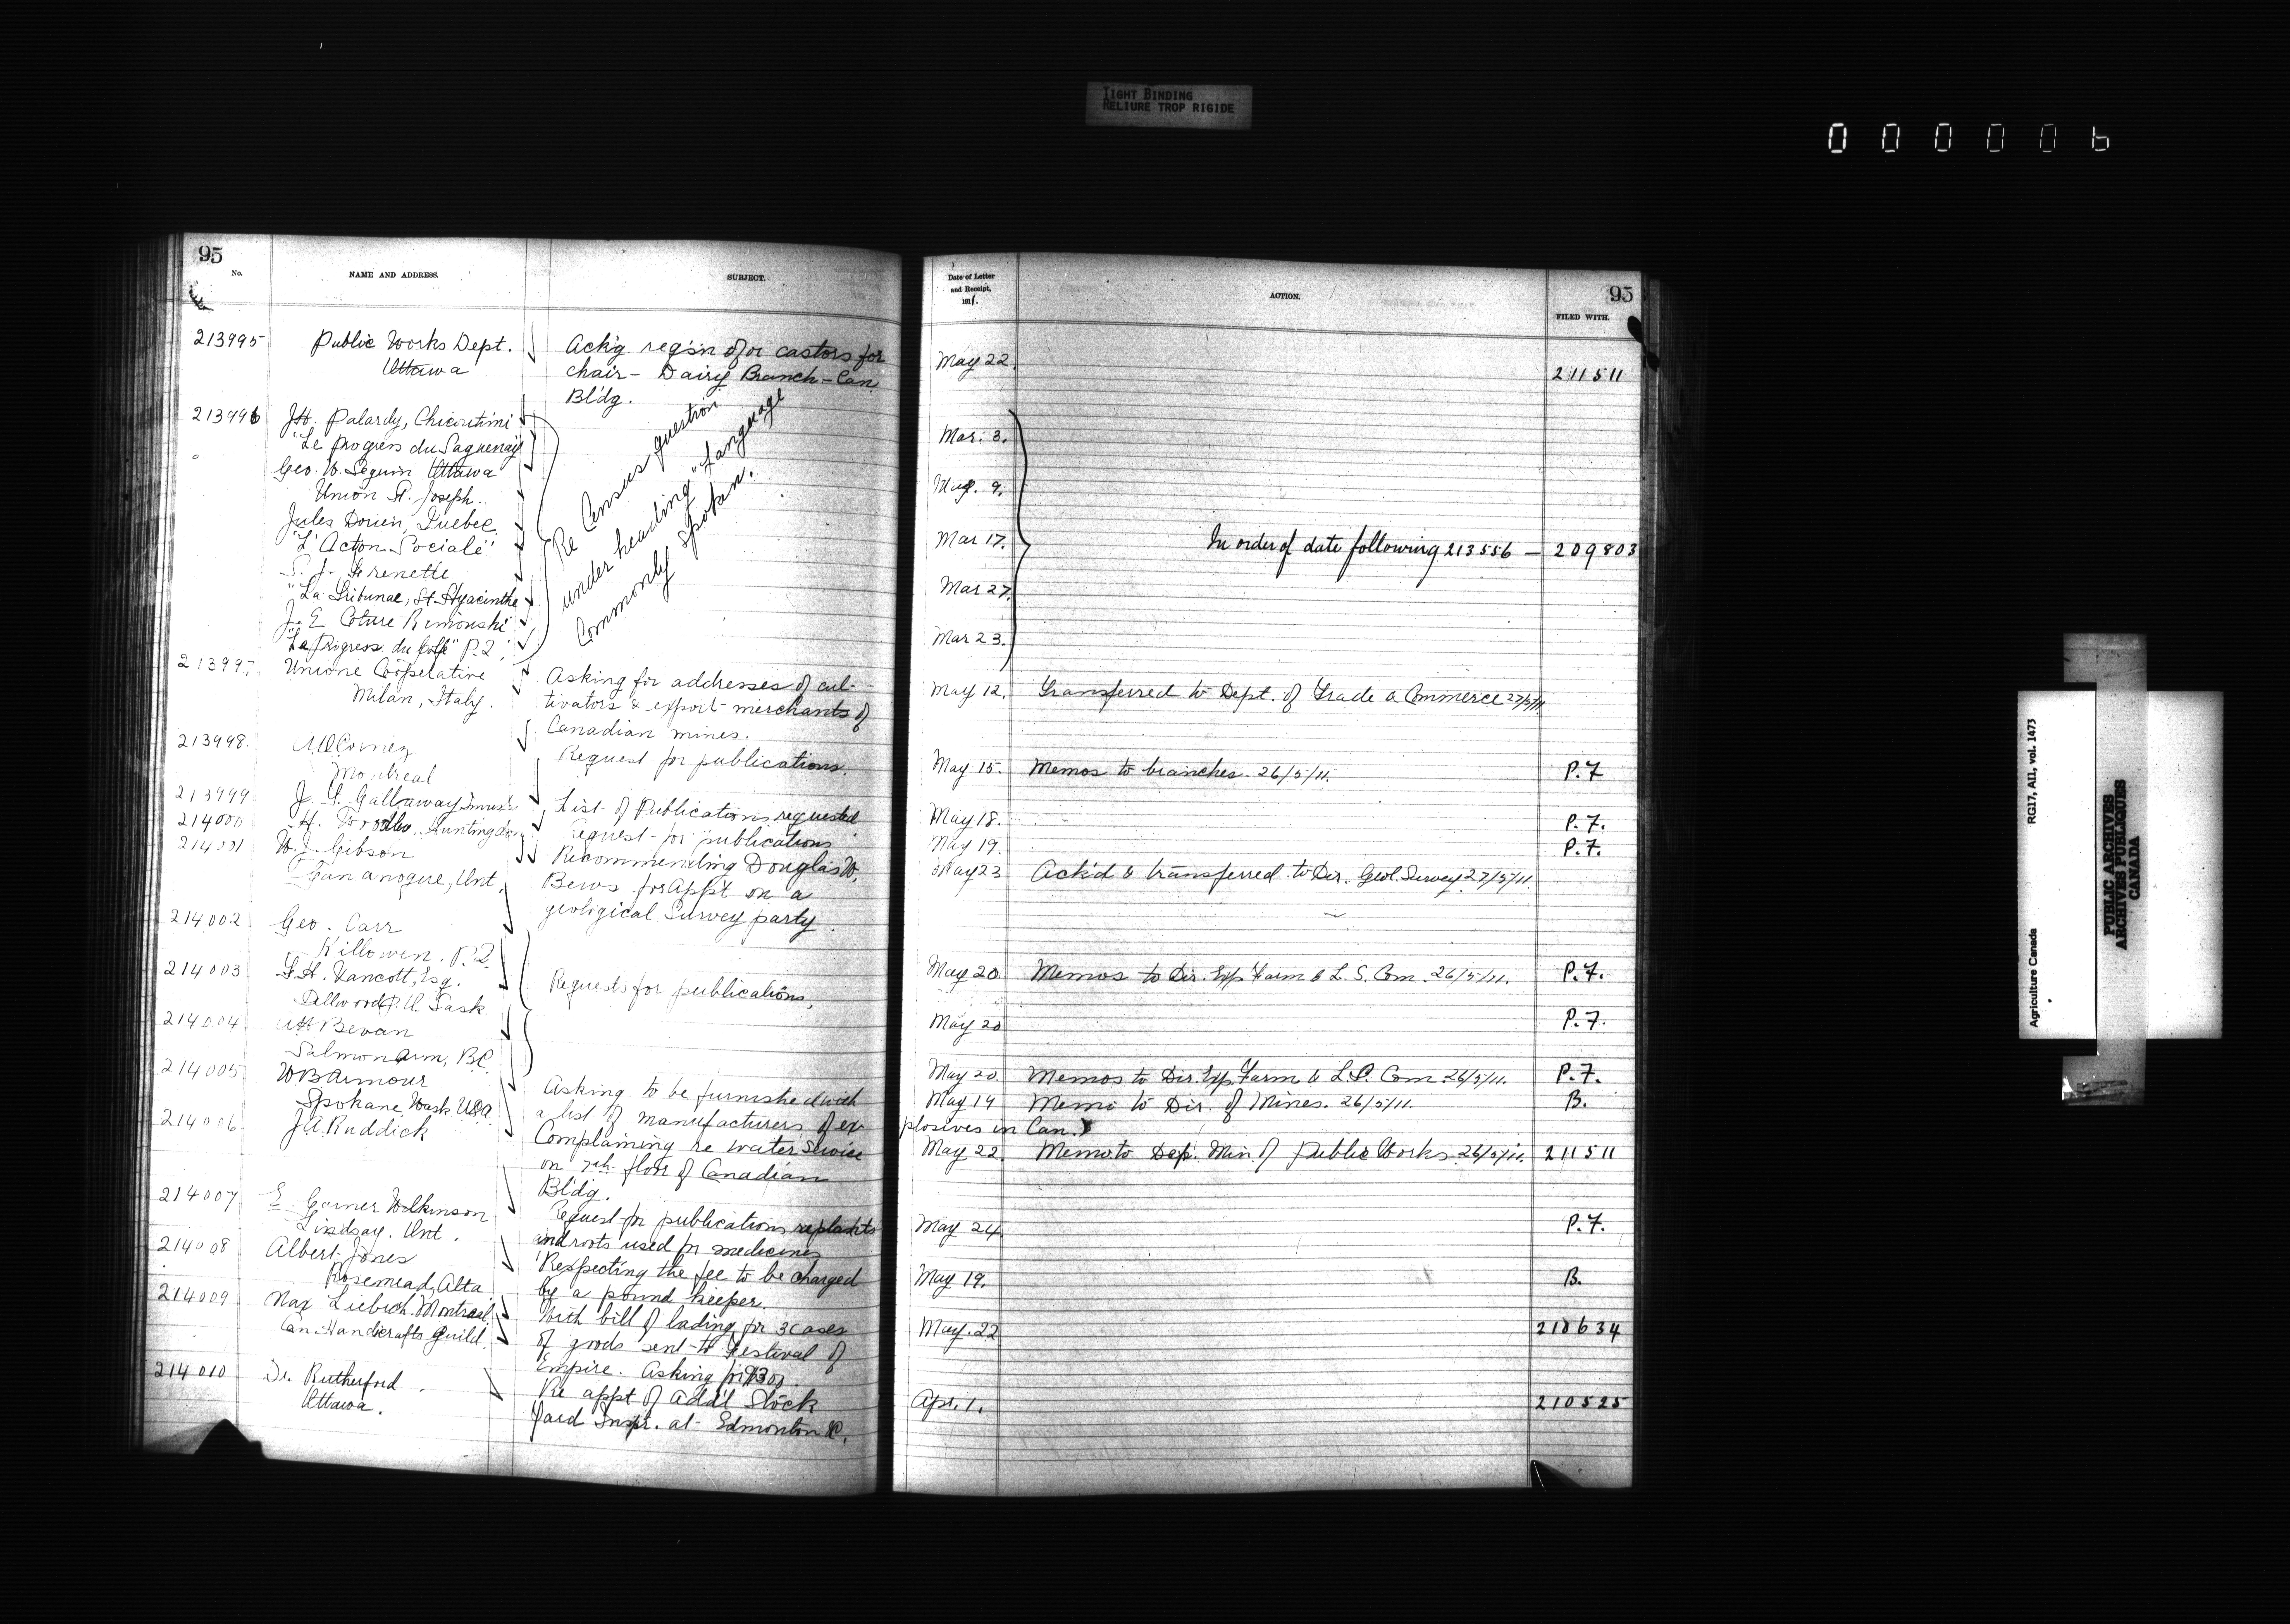 TIGHT BINDING
RELIURE TROP RIGIDE
000006
95
No.
NAME AND ADDRESS.
SUBJECT.
213995
Public Works Dept.
Ottawa
Ack'g. reqs'n for castors for
chair - Dairy Branch - Can
Bldg.
213996
J.H. Palardy, Chicoutimi
"Le Progres du Saguenay
Geo. W. Seguin Ottawa
Union St. Joseph.
Jules Dorien, Quebec
"L'Action Sociale"
S. J. Frenette
"La Tribune, St. Hyacinthe
J. E Coture Rimouski
"Le Progress du Golfe" P.Q.
Re Census question
under heading "Language
Commonly spoken.
21399
Unione Cooperative
Milan, Italy.
Asking for addresses of cul-
tivators & export merchants of
Canadian mines.
213998.
Montreal
Request for publications.
213999
J. Gallaway
List of Publications requested.
214000
H. Huntingdon
Request for publications
214001
W. J. Gibson
Gananoque, Ont.
Recommending Douglas W.
Bews for App't on a
geological Survey party.
214002
Geo. Carr
Killowen. P.Q.
214003
F.H. Vancott, Esq.
Dellwood P.O. Sask
214004
Bevan
Salmon Arm, B.C.
Requests for publications,
214005
W B Armour
Spokane, Wash. U.S.A.
Asking to be furnished with
a list of manufacturers of ex-
214006
J.A. Ruddick
Complaining re water Service
on 7th floor of Canadian
Bldg.
214007
E. Garner Wilkinson
Lindsay. Ont.
Request for publications re plants
and roots used for medicines
214008
Albert Jones
Rosemead, Alta
Respecting the fee to be charged
by a pound keeper.
214009
Max Liebich Montreal
Can. Handicrafts Guild.
With bill of lading for 3 cases
of goods sent to Festival of
Empire. Asking for
214010
Dr. Rutherford
Ottawa.
Re appt of Add'l Stock
Yard Inspr. at Edmonton &c.
Date of Letter
and Receipt,
1911.
ACTION.
95
FILED WITH.
May 22.
211511
Mar. 3.
Mar. 9.
Mar 17.
In order of date following 213556 — 209803
Mar 27.
Mar 23.
May 12.
Transferred to Dept. of Trade & Commerce 27/5/11.
May 15.
Memos to branches. 26/5/11.
P.7
May 18.
P.7.
May 19.
P.7.
May 23
Ack'd & transferred to Dir. Geol. Survey 27/5/11.
May 20
Memos to Dir. Exp. Farm & L. S. Com. 26/5/11.
P.7.
May 20
P.7.
May 20
Memos to Dir. Exp. Farm & L.S. Com. 26/5/11.
P.7.
May 19
Memo to Dir. of Mines. 26/5/11.
B.
plosives in Can.
May 22
Memo to Dep. Min. of Public Works. 26/5/11.
211511
May 24
P.7.
May 19.
B.
May. 22
210634
Apr. 1.
210525
Agriculture Canada
RG17, AII, vol. 1473
PUBLIC ARCHIVES
ARCHIVES PUBLIQUES
CANADA